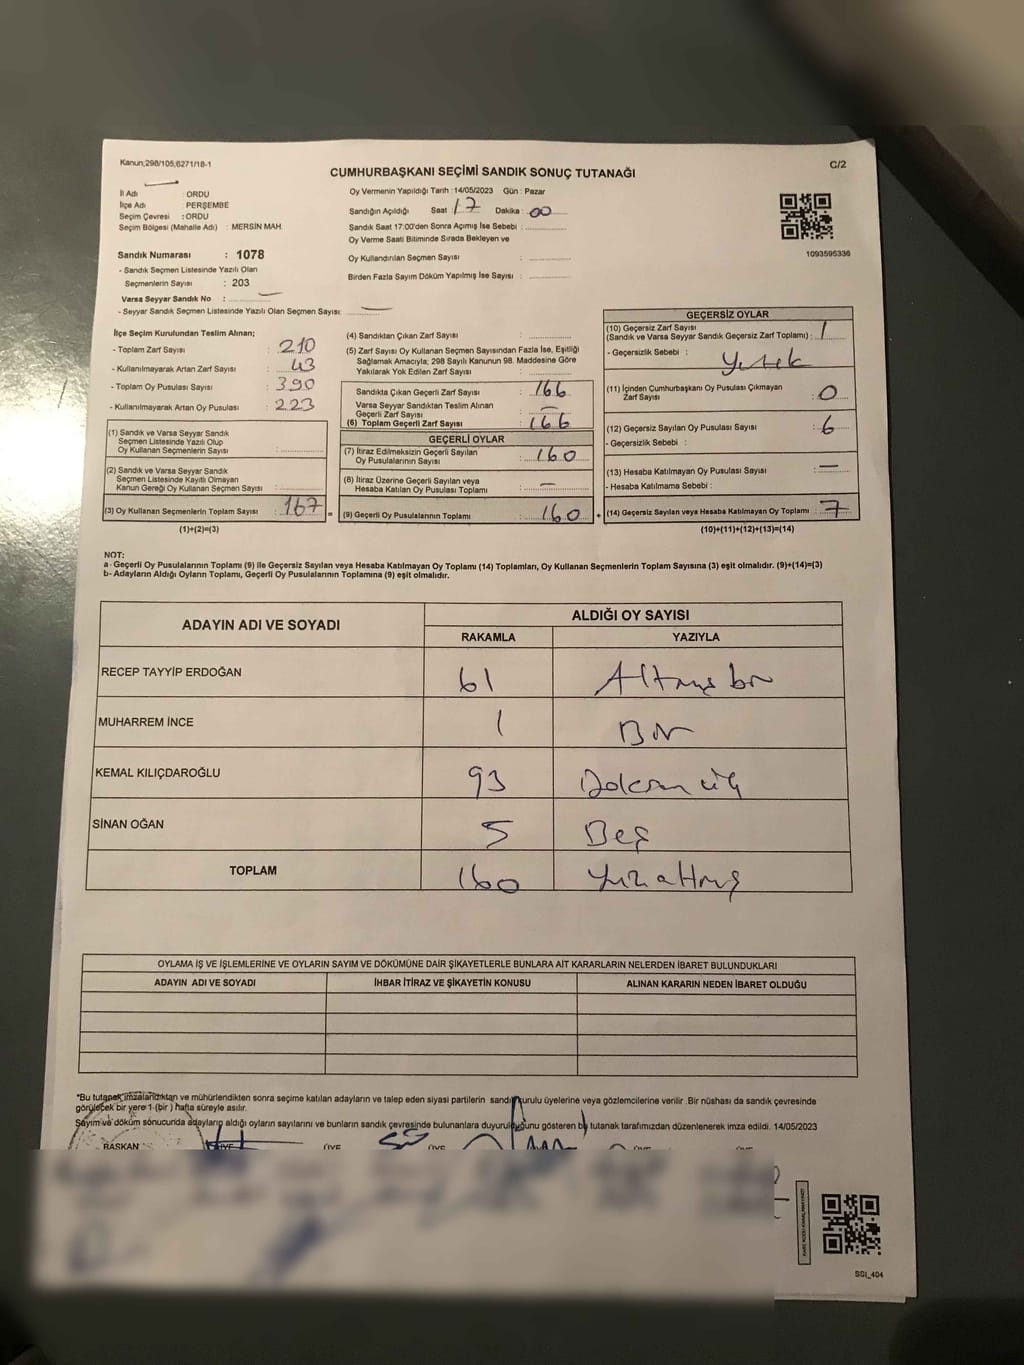 Kanun;298/105,6271/18-1
C/2
CUMHURBAŞKANI SEÇİMİ SANDIK SONUÇ TUTANAĞI
İl Adı : ORDU
İlçe Adı : PERŞEMBE
Seçim Çevresi : ORDU
Seçim Bölgesi (Mahalle Adı) : MERSİN MAH
Sandık Numarası : 1078
- Sandık Seçmen Listesinde Yazılı Olan
Seçmenlerin Sayısı : 203
Varsa Seyyar Sandık No : —
- Seyyar Sandık Seçmen Listesinde Yazılı Olan Seçmen Sayısı: —
Oy Vermenin Yapıldığı Tarih :14/05/2023 Gün : Pazar
Sandığın Açıldığı Saat 17 Dakika : 00
Sandık Saat 17:00'den Sonra Açımış İse Sebebi :
Oy Verme Saati Bitiminde Sırada Bekleyen ve
Oy Kullandırılan Seçmen Sayısı :
Birden Fazla Sayım Döküm Yapılmış İse Sayısı :
1093595336
İlçe Seçim Kurulundan Teslim Alınan;
- Toplam Zarf Sayısı : 210
- Kullanılmayarak Artan Zarf Sayısı : 43
- Toplam Oy Pusulası Sayısı : 390
- Kullanılmayarak Artan Oy Pusulası : 223
(1) Sandık ve Varsa Seyyar Sandık
Seçmen Listesinde Yazılı Olup
Oy Kullanan Seçmenlerin Sayısı :
(2) Sandık ve Varsa Seyyar Sandık
Seçmen Listesinde Kayıtlı Olmayan
Kanun Gereği Oy Kullanan Seçmen Sayısı :
(3) Oy Kullanan Seçmenlerin Toplam Sayısı : 167 =
(1)+(2)=(3)
(4) Sandıktan Çıkan Zarf Sayısı :
(5) Zarf Sayısı Oy Kullanan Seçmen Sayısından Fazla İse, Eşitliği
Sağlamak Amacıyla; 298 Sayılı Kanunun 98. Maddesine Göre
Yakılarak Yok Edilen Zarf Sayısı :
Sandıkta Çıkan Geçerli Zarf Sayısı : 166
Varsa Seyyar Sandıktan Teslim Alınan
Geçerli Zarf Sayısı : —
(6) Toplam Geçerli Zarf Sayısı : 166
GEÇERLİ OYLAR
(7) İtiraz Edilmeksizin Geçerli Sayılan
Oy Pusulalarının Sayısı : 160
(8) İtiraz Üzerine Geçerli Sayılan veya
Hesaba Katılan Oy Pusulası Toplamı : —
(9) Geçerli Oy Pusulalarının Toplamı : 160 +
GEÇERSİZ OYLAR
(10) Geçersiz Zarf Sayısı
(Sandık ve Varsa Seyyar Sandık Geçersiz Zarf Toplamı) : 1
- Geçersizlik Sebebi : Yırtık
(11) İçinden Cumhurbaşkanı Oy Pusulası Çıkmayan
Zarf Sayısı : 0
(12) Geçersiz Sayılan Oy Pusulası Sayısı : 6
- Geçersizlik Sebebi :
(13) Hesaba Katılmayan Oy Pusulası Sayısı : —
- Hesaba Katılmama Sebebi :
(14) Geçersiz Sayılan veya Hesaba Katılmayan Oy Toplamı : 7
(10)+(11)+(12)+(13)=(14)
NOT:
a - Geçerli Oy Pusulalarının Toplamı (9) ile Geçersiz Sayılan veya Hesaba Katılmayan Oy Toplamı (14) Toplamları, Oy Kullanan Seçmenlerin Toplam Sayısına (3) eşit olmalıdır. (9)+(14)=(3)
b- Adayların Aldığı Oyların Toplamı, Geçerli Oy Pusulalarının Toplamına (9) eşit olmalıdır.
ADAYIN ADI VE SOYADI
ALDIĞI OY SAYISI
RAKAMLA YAZIYLA
RECEP TAYYİP ERDOĞAN 61 Altmış bir
MUHARREM İNCE 1 Bir
KEMAL KILIÇDAROĞLU 93 Doksan üç
SİNAN OĞAN 5 Beş
TOPLAM 160 Yüzaltmış
OYLAMA İŞ VE İŞLEMLERİNE VE OYLARIN SAYIM VE DÖKÜMÜNE DAİR ŞİKAYETLERLE BUNLARA AİT KARARLARIN NELERDEN İBARET BULUNDUKLARI
ADAYIN ADI VE SOYADI İHBAR İTİRAZ VE ŞİKAYETİN KONUSU ALINAN KARARIN NEDEN İBARET OLDUĞU
*Bu tutanak imzalandıktan ve mühürlendikten sonra seçime katılan adayların ve talep eden siyasi partilerin sandık kurulu üyelerine veya gözlemcilerine verilir .Bir nüshası da sandık çevresinde
görülecek bir yere 1 (bir ) hafta süreyle asılır.
Sayım ve döküm sonucunda adayların aldığı oyların sayılarını ve bunların sandık çevresinde bulunanlara duyurulduğunu gösteren bu tutanak tarafımızdan düzenlenerek imza edildi. 14/05/2023
BAŞKAN ÜYE ÜYE ÜYE ÜYE ÜYE
SGI_404